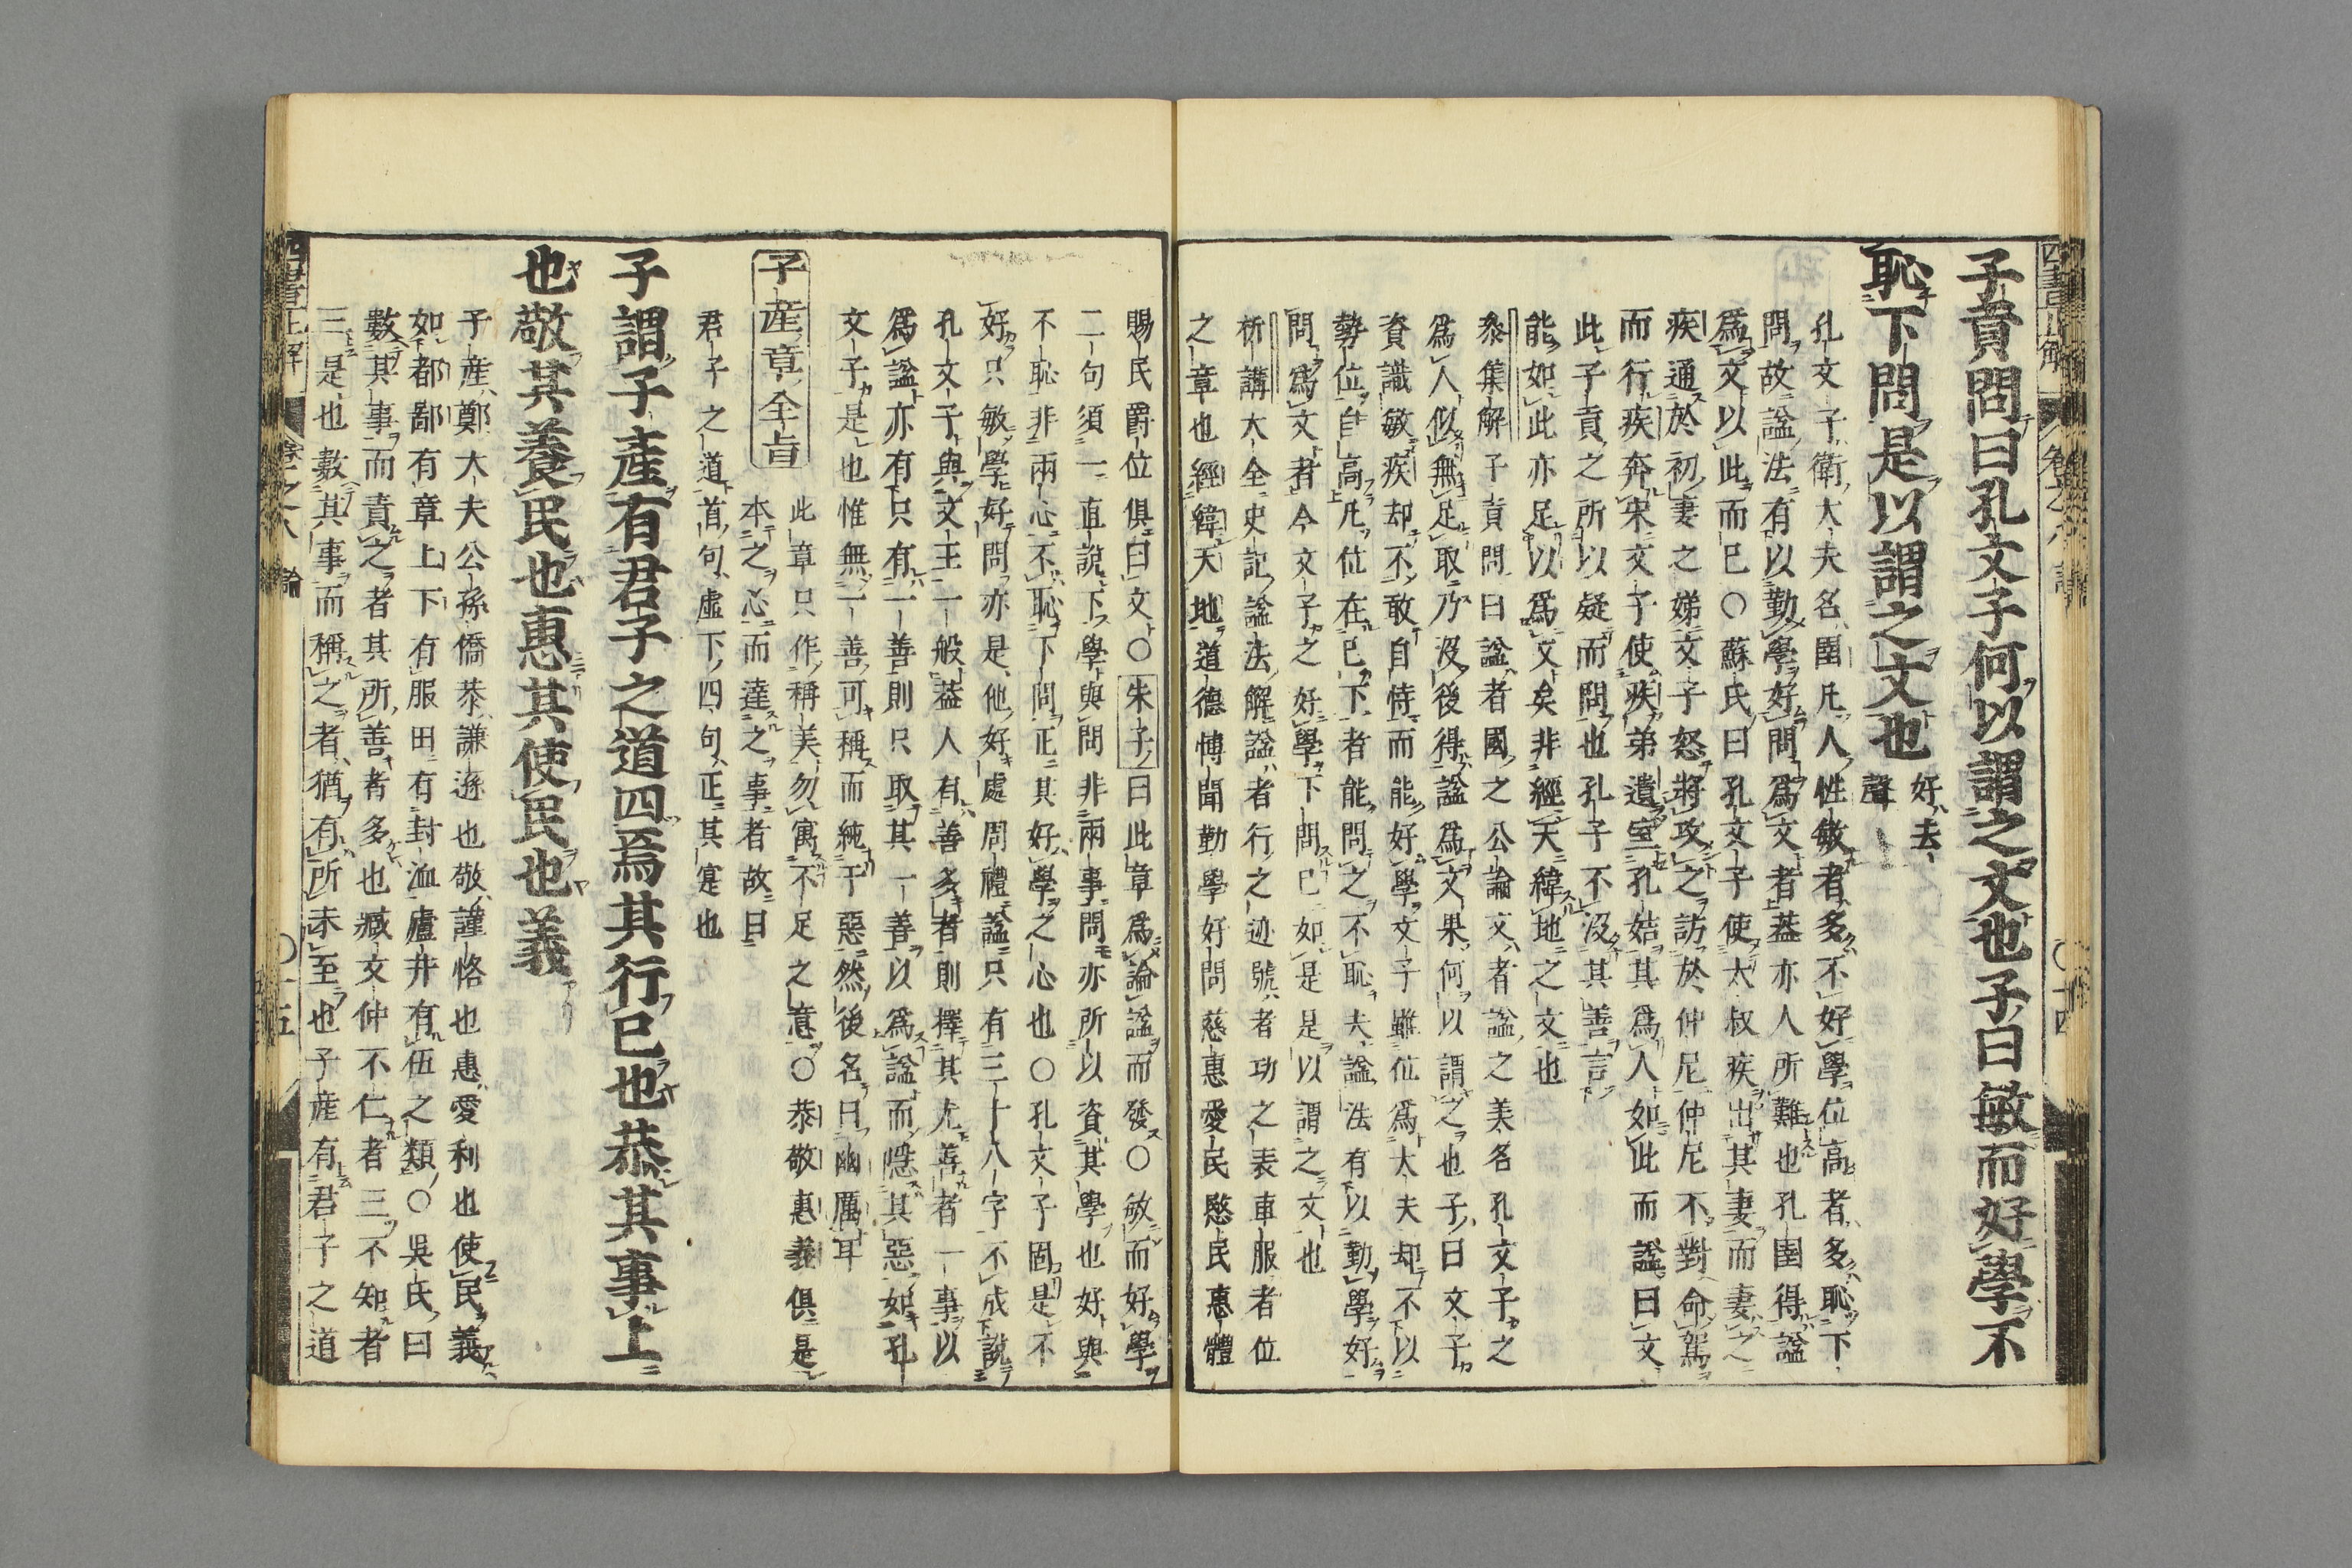 子貢問曰孔文子何以謂之文也子曰敏而好學不
恥下問是以謂之文也
好去
聲
孔文子衛大夫名圉凡人性敏者多不好學位高者多恥下
問故諡法有以勤學好問爲文者葢亦人所難也孔圉得諡
爲文以此而已○蘇氏曰孔文子使太叔疾出其妻而妻之
疾通於初妻之娣文子怒將攻之訪於仲尼仲尼不對命駕
而行疾奔宋文子使疾弟遺室孔姞其爲人如此而諡曰文
此子貢之所以疑而問也孔子不沒其善言
能如此亦足以爲文矣非經天緯地之文也
叅集解子貢問曰諡者國之公論文者諡之美名孔文子之
爲人似無足取乃沒後得諡爲文果何以謂之也子曰文子
資識敏疾却不敢自恃而能好學文子雖位爲大夫却不以
勢位自高凡位在已下者能問之不恥夫諡法有以勤學好
問爲文者今文子之好學下問已如是是以謂之文也
析講大全史記諡法解諡者行之迹號者功之表車服者位
之章也經緯天地道德博聞勤學好問慈惠愛民愍民惠體
賜民爵位俱曰文○朱子曰此章爲論諡而發○敏而好學
二句須一直說下學與問非兩事問亦所以資其學也好與
不恥非兩心不恥下問正其好學之心也○孔文子固是不
好只敏學好問亦是他好處周禮諡只有三十八字不成說
孔文子與文王一般葢人有善多者則擇其尤善者一事以
爲諡亦有只有一善則只取其一善以爲諡而隱其惡如孔
文子是也惟無一善可稱而純于惡然後名曰幽厲耳
子產章全旨
此章只作稱美勿寓不足之意○恭敬惠義俱是
本之心而達之事者故曰
君子之道首句虛下四句正其寔也
子謂子產有君子之道四焉其行已也恭其事上
也敬其養民也惠其使民也義
子產鄭大夫公孫僑恭謙遜也敬謹恪也惠愛利也使民義
如都鄙有章上下有服田有封洫廬井有伍之類○吳氏曰
數其事而責之者其所善者多也臧文仲不仁者三不知者
三是也數其事而稱之者猶有所未至也子產有君子之道